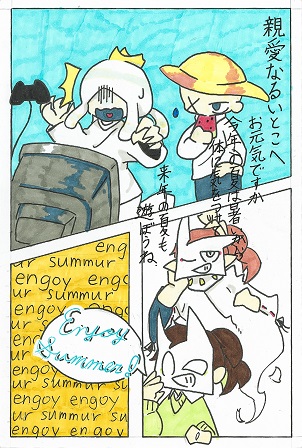 親愛なるいとこへ
お元気ですか
今年の夏は暑いから
体に気をつけ
来年の夏も
遊ぼうね
engoy
ur summur
engoy engoy
ur summur
engoy eng
ur summur
engoy
ur sum
engoy
ur summu
engoy engoy
ur summur su
engoy engoy
ur summur
Enjoy
Summer!